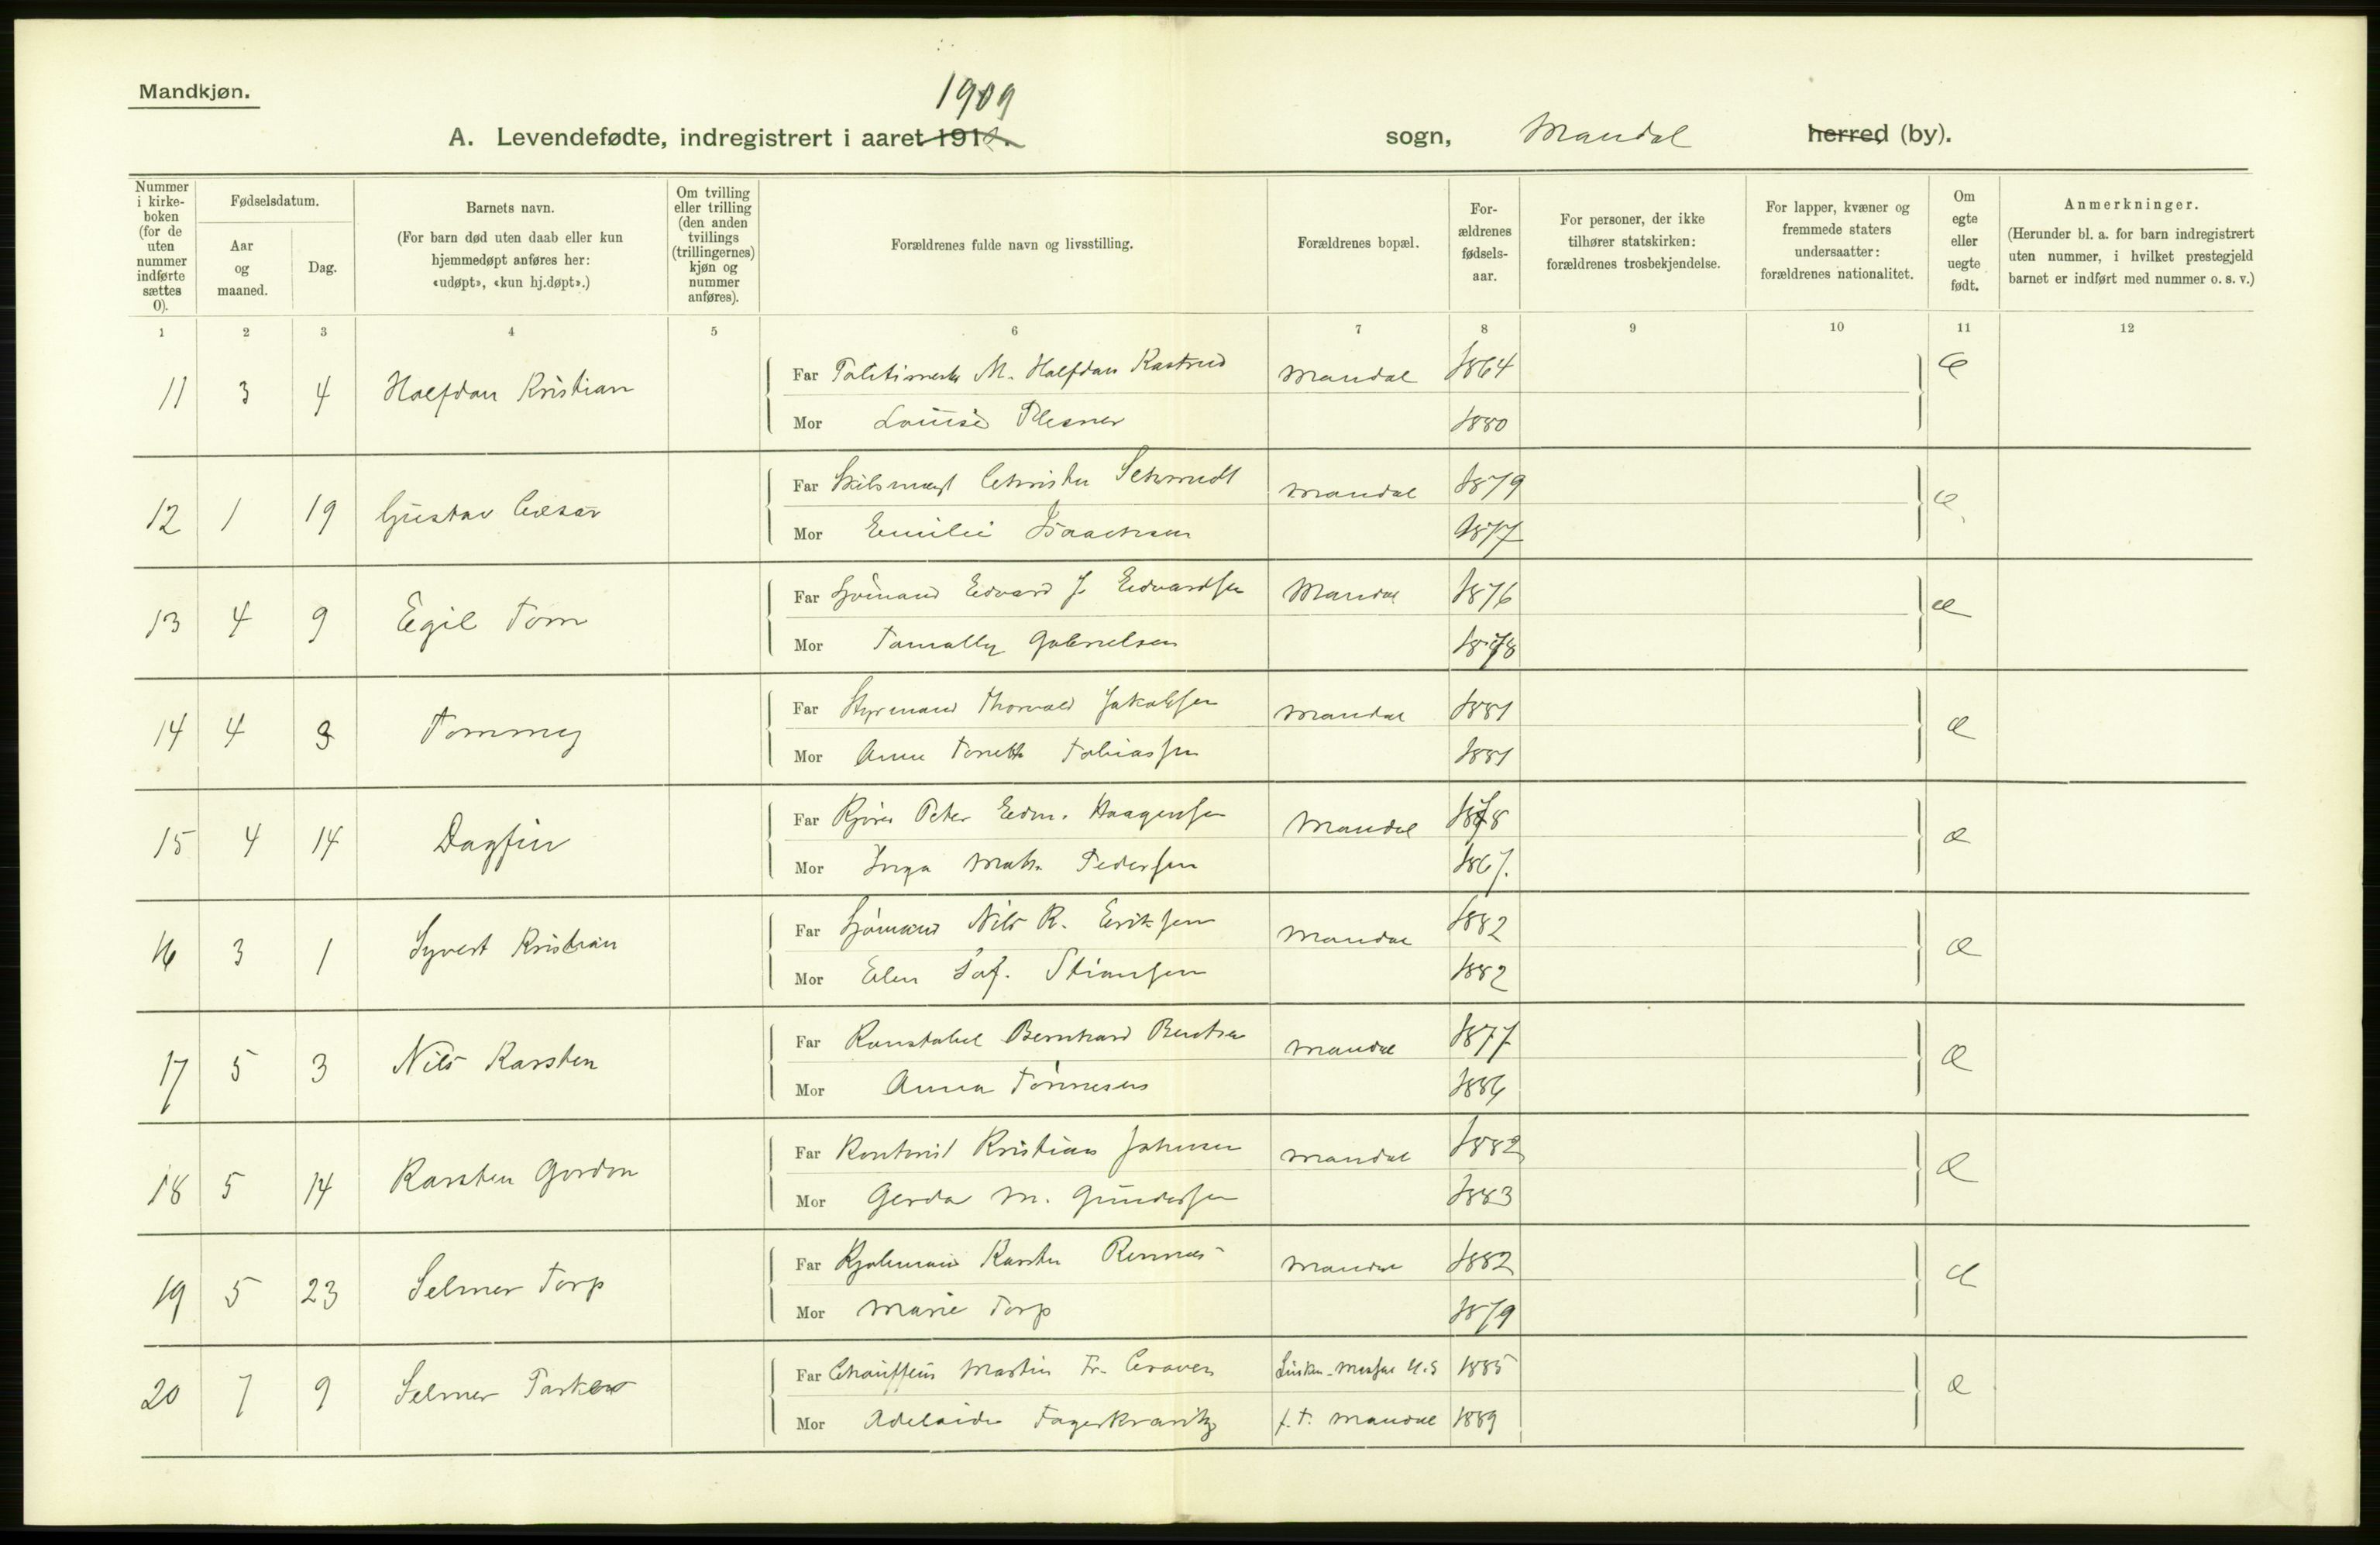 Mandkjøn.
1909
A. Levendefødte, indregistrert i aaret 191 . sogn, Mandal herred (by).
Nummer i kirke-boken (for de uten nummer indførte sættes 0).
Fødselsdatum.
Aar og maaned.
Dag.
Barnets navn.
(For barn død uten daab eller kun hjemmedøpt anføres her: «udøpt», «kun hj.døpt».)
Om tvilling eller trilling (den anden tvillings (trillingernes) kjøn og nummer anføres).
Forældrenes fulde navn og livsstilling.
Forældrenes bopæl.
For-ældrenes fødsels-aar.
For personer, der ikke tilhører statskirken: forældrenes trosbekjendelse.
For lapper, kvæner og fremmede staters undersaatter: forældrenes nationalitet.
Om egte eller uegte født.
Anmerkninger.
(Herunder bl. a. for barn indregistrert uten nummer, i hvilket prestegjeld barnet er indført med nummer o. s. v.)
1 2 3 4 5 6 7 8 9 10 11 12
11 3 4 Halfdan Kristian Far M. Halfdan Kastrud Mandal 1864 e
Mor Louise Plesner 1880
12 1 19 Gustav Cæsar Far Schmidt Mandal 1879 e
Mor Emilie Isaachsen 1877
13 4 9 Egil Tom Far Sjömand Edvard J. Edvardsen Mandal 1876 e
Mor Tomally Gabrielsen 1878
14 4 3 Tommy Far Styrmand Thorvald Jakobsen Mandal 1881 e
Mor Anne Tonette Tobiassen 1881
15 4 14 Dagfin Far Peter Edm. Haagensen Mandal 1878 e
Mor Inga Math. Pedersen 1867.
16 3 1 Syvert Kristian Far Sjömand Nils R. Eriksen Mandal 1882 e
Mor Elen Stiansen 1882
17 5 3 Nils Karsten Far Konstabel Bernhard Bentsen Mandal 1877 e
Mor Anna Tönnesen 1886
18 5 14 Karsten Gordon Far Kontorist Kristian Johnsen Mandal 1882 e
Mor Gerda M. Gundersen 1883
19 5 23 Selmer Torp Far Karsten Mandal 1882 e
Mor Marie Torp 1879
20 7 9 Selmer Parker Far Chauffeur Martin Fr. Craven U.S 1885 e
Mor Adelaide Fagerkrantz f.t. Mandal 1889